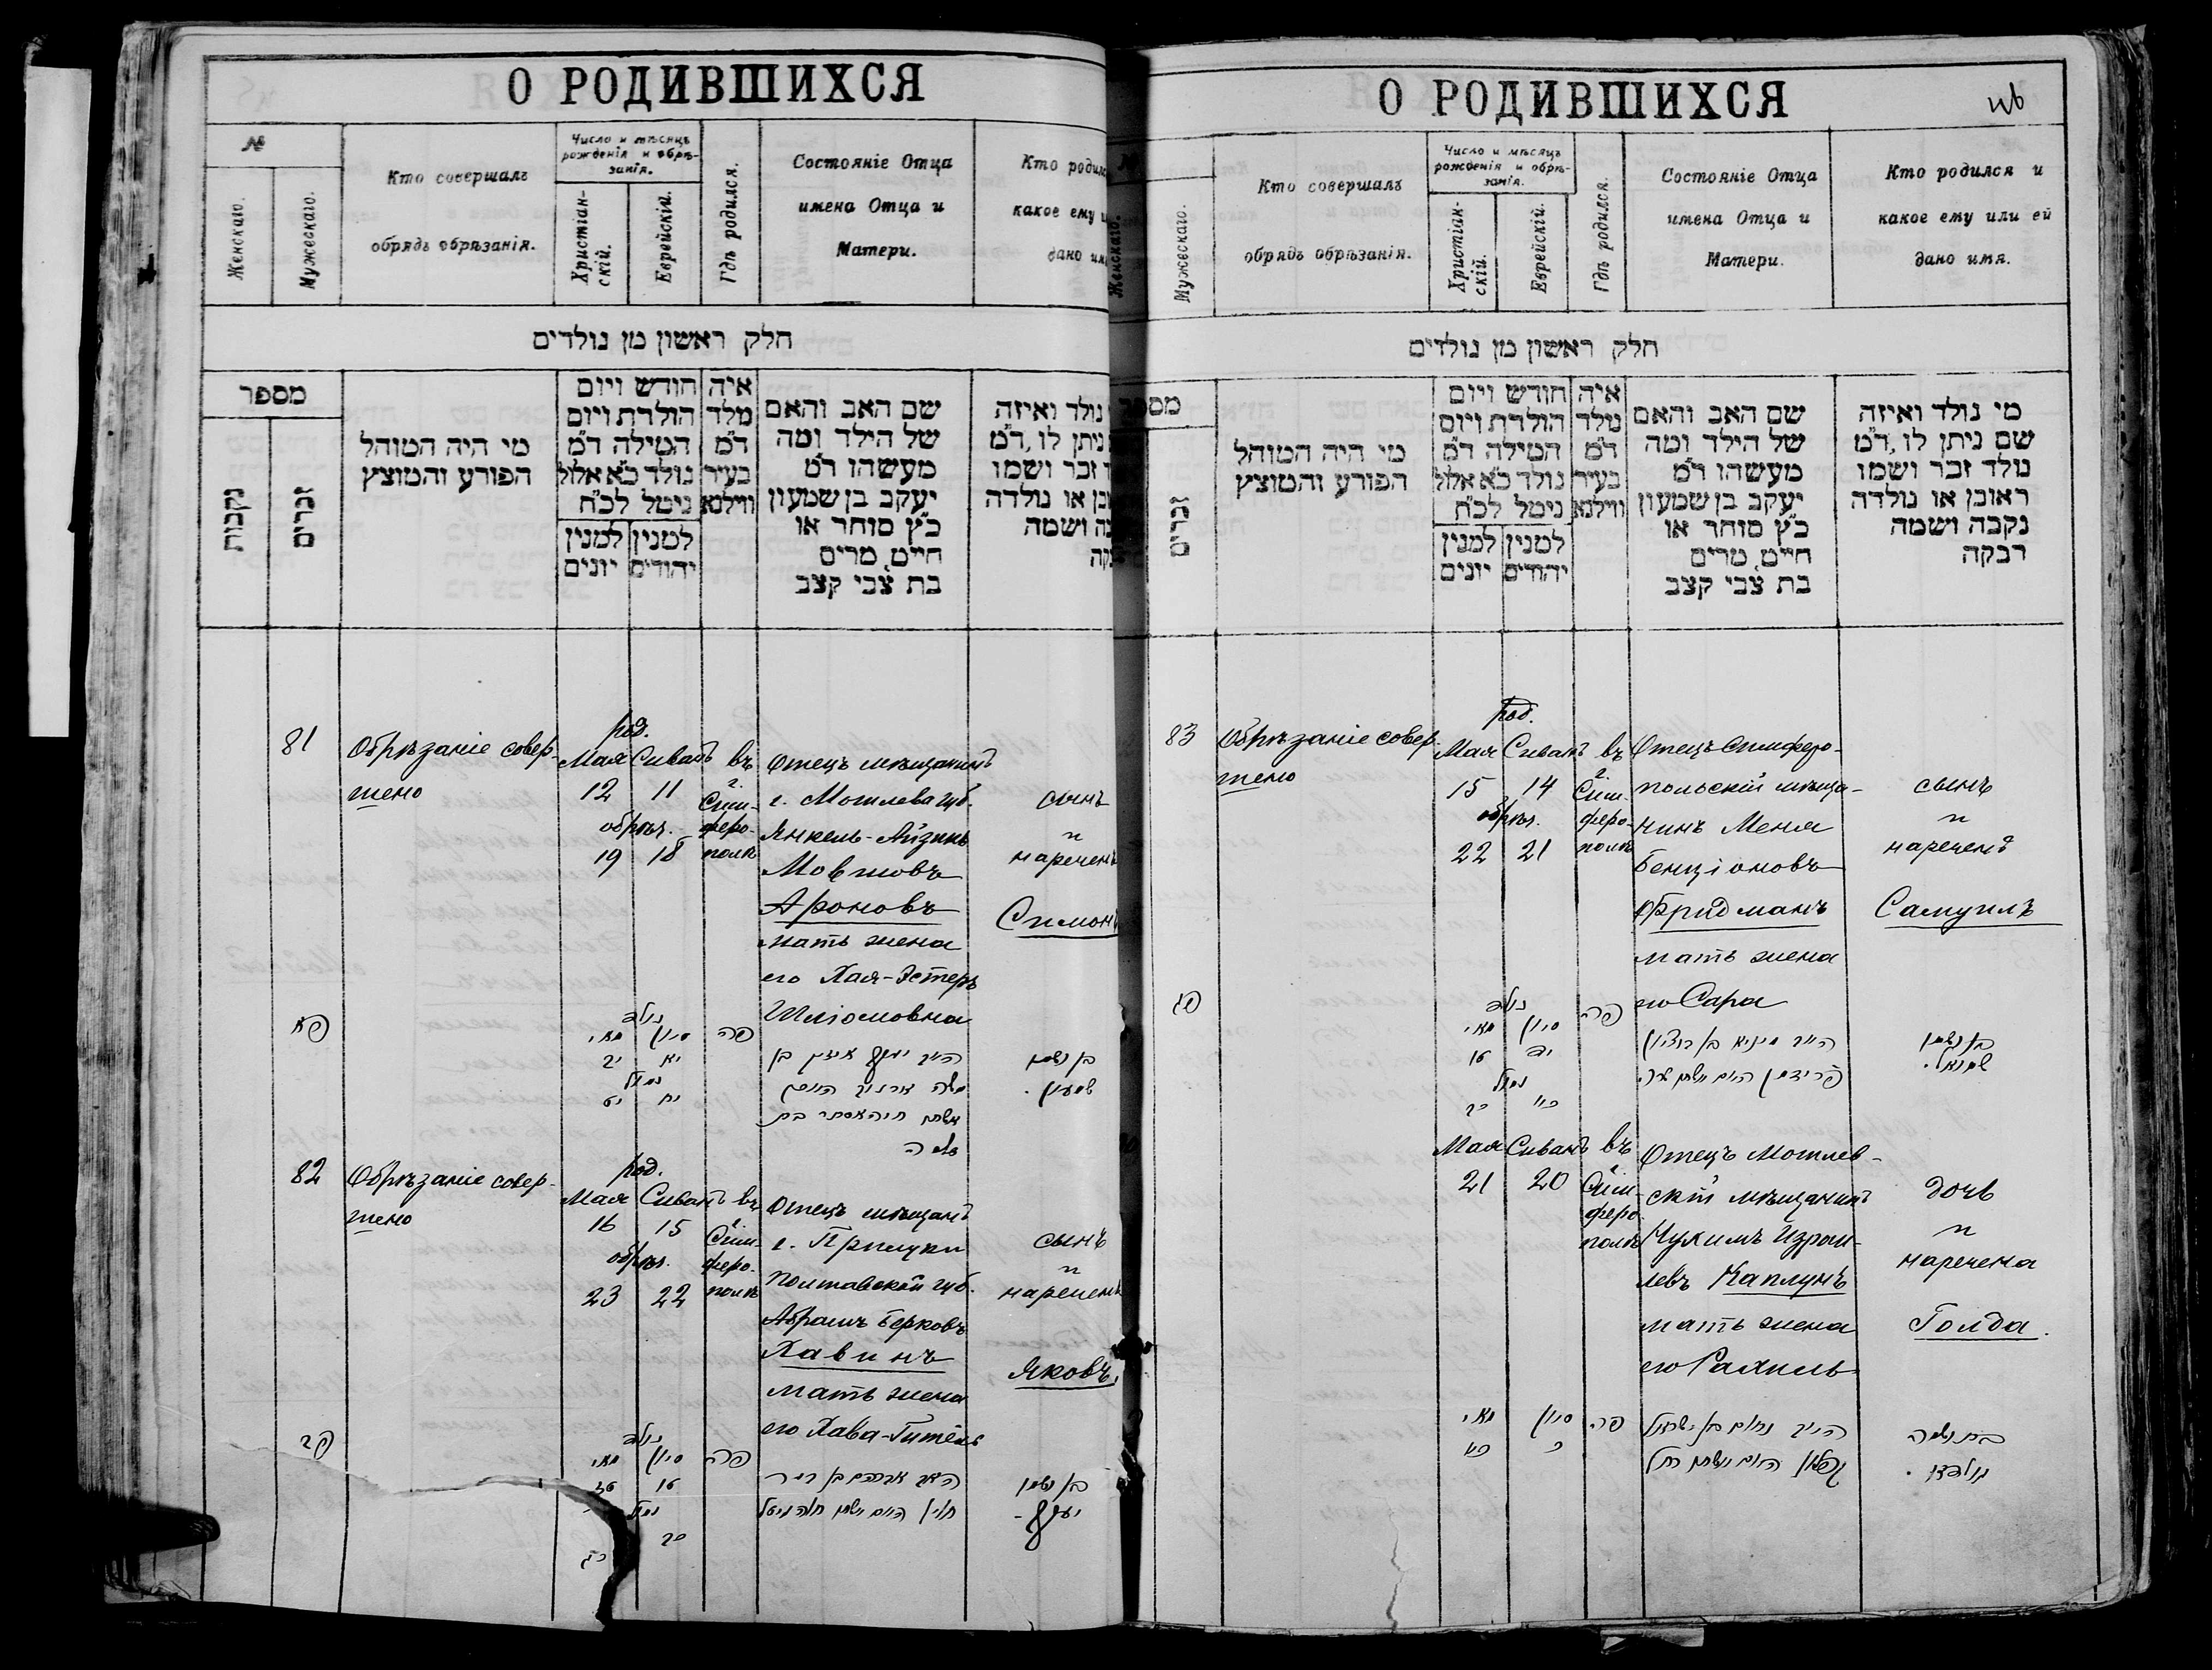 О РОДИВШИХСЯ
№
Женскаго.
Мужескаго.
Кто совершалъ
обрядъ обрѣзанія.
Число и мѣсяцъ
рожденія и обрѣ-
занія.
Христіан-
скій.
Еврейскій.
Гдѣ родился.
Состояніе Отца
имена Отца и
Матери.
Кто родилс
какое ему и
дано им
חלק ראשון מן נולדים
מספר
נקבות
זכרים
מי היה המוהל
הפורע והמוצץ
חודש ויום
הולדת ויום
המילה ד״מ
נולד כ״א אלול
נימל לכ״ח
למנין יהודים
למנין יונים
איה
נולד
ד״מ
בעיר
ווילנא
שם האב והאם
של הילד ומה
מעשהו ד״מ
יעקב בן שמעון
כ״ץ סוחר או
חייט, מרים
בת צבי קצב
נולד ואיזה
ניתן לו, ד״מ
זכר ושמו
או נולדה
ושמה
81
Обрѣзаніе совер-
шено
род.
Мая Сиванъ
12 11
обрѣз.
19 18
въ
г.
Сим-
феро-
полѣ
Отецъ мѣщанинъ
г. Могилева губ.
Янкель-Айзикъ
Мовшовъ
Ароновъ
мать жена
его Хая-Эстеръ
Шліомовна
сынъ
и
нареченъ
Симонъ
פא
נולד
מאי סיון
יב יא
נימול
יט יח
פה
בן ושמו
שמעון.
82
Обрѣзаніе совер-
шено
род.
Мая Сиванъ
16 15
обрѣз.
23 22
въ
г.
Сим-
феро-
полѣ
Отецъ мѣщан.
г. Прилуки
Полтавской губ.
Абрамъ Берковъ
Хавинъ
мать жена
его Хава-Гитель
сынъ
и
нареченъ
Яковъ.
פב
נולד
מאי סיון
טז טו
נימול
כג כב
פה
בן ושמו
יעקב
О РОДИВШИХСЯ
46
Женскаго.
Мужескаго.
Кто совершалъ
обрядъ обрѣзанія.
Число и мѣсяцъ
рожденія и обрѣ-
занія.
Христіан-
скій.
Еврейскій.
Гдѣ родился.
Состояніе Отца
имена Отца и
Матери.
Кто родился и
какое ему или ей
дано имя.
חלק ראשון מן נולדים
זכרים
מי היה המוהל
הפורע והמוצץ
חודש ויום
הולדת ויום
המילה ד״מ
נולד כ״א אלול
נימל לכ״ח
למנין יהודים
למנין יונים
איה
נולד
ד״מ
בעיר
ווילנא
שם האב והאם
של הילד ומה
מעשהו ד״מ
יעקב בן שמעון
כ״ץ סוחר או
חייט, מרים
בת צבי קצב
מי נולד ואיזה
שם ניתן לו, ד״מ
נולד זכר ושמו
ראובן או נולדה
נקבה ושמה
רבקה
83
Обрѣзаніе совер-
шено
род.
Мая Сиванъ
15 14
обрѣз.
22 21
въ
г.
Сим-
феро-
полѣ
Отецъ Симферо-
польскій мѣща-
нинъ Меня
Бенціоновъ
Фридманъ
мать жена
его Сара
сынъ
и
нареченъ
Самуилъ
פג
נולד
מאי סיון
טו יד
נימול
כב כא
פה
בן ושמו
שמואל.
Мая Сиванъ
21 20
въ
г.
Сим-
феро-
полѣ
Отецъ Могилев-
скій мѣщанинъ
Нухимъ Израи-
левъ Каплунъ
мать жена
его Рахиль
дочь
и
наречена
Голда.
מאי סיון
כא כ
פה
בת ושמה
גולדה.